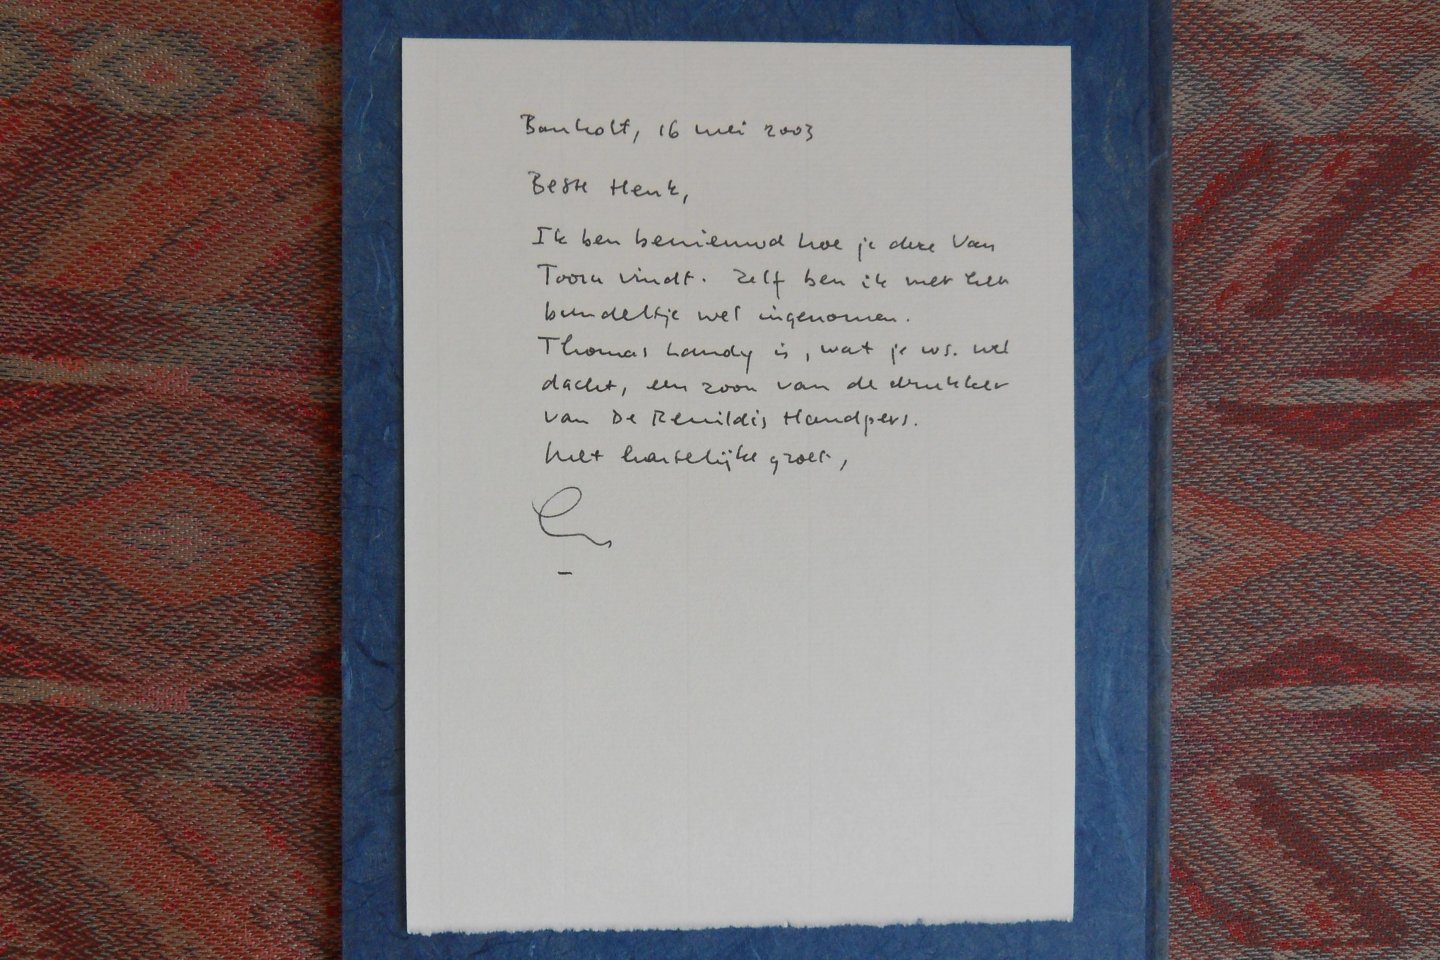 Banholt, 16 mei 2003
Beste Henk,
Ik ben benieuwd hoe je deze Van
Toorn vindt. Zelf ben ik met het
bundeltje wel ingenomen.
Thomas Landy is, wat je ws. wel
dacht, een zoon van de drukker
van De Renildis Handpers.
Met hartelijke groet,